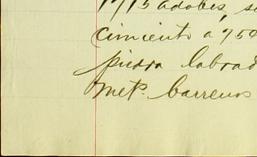 1715 adobes, se
cimiento a 950
piedra labrad
met. barrenos